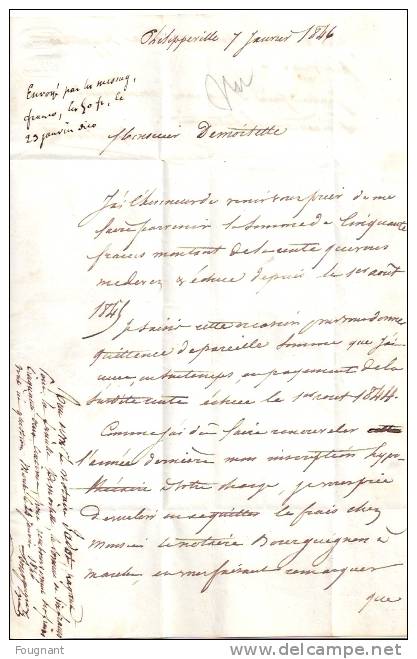 Philippeville 7 Janvier 1846
Envoyé par les messag.
franco, les 50 fr, le
23 janvier dico
Monsieur Demoitelle
J'ai l'honneur de venir vous prier de me
faire parvenir la somme de Cinquante
francs montant de la rente que vous
me devez & échue depuis le 1er août
1845
Je saisis cette occasion pour vous donner
quittance de pareille somme que j'ai
reçue, en son temps, en payement de la
susdite rente échue le 1er août 1844.
Comme j'ai dû faire renouveler
l'année dernière mon inscription hypo-
thécaire à votre charge, je vous prie
de vouloir en acquitter les frais chez
Monsieur le notaire Bourguignon à
marche, en vous faisant remarquer
que
delcampe.net
Fougnant